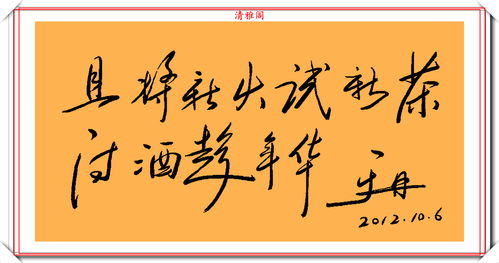 清雅阁
且将新火试新茶
诗酒趁年华 于丹
2012.10.6